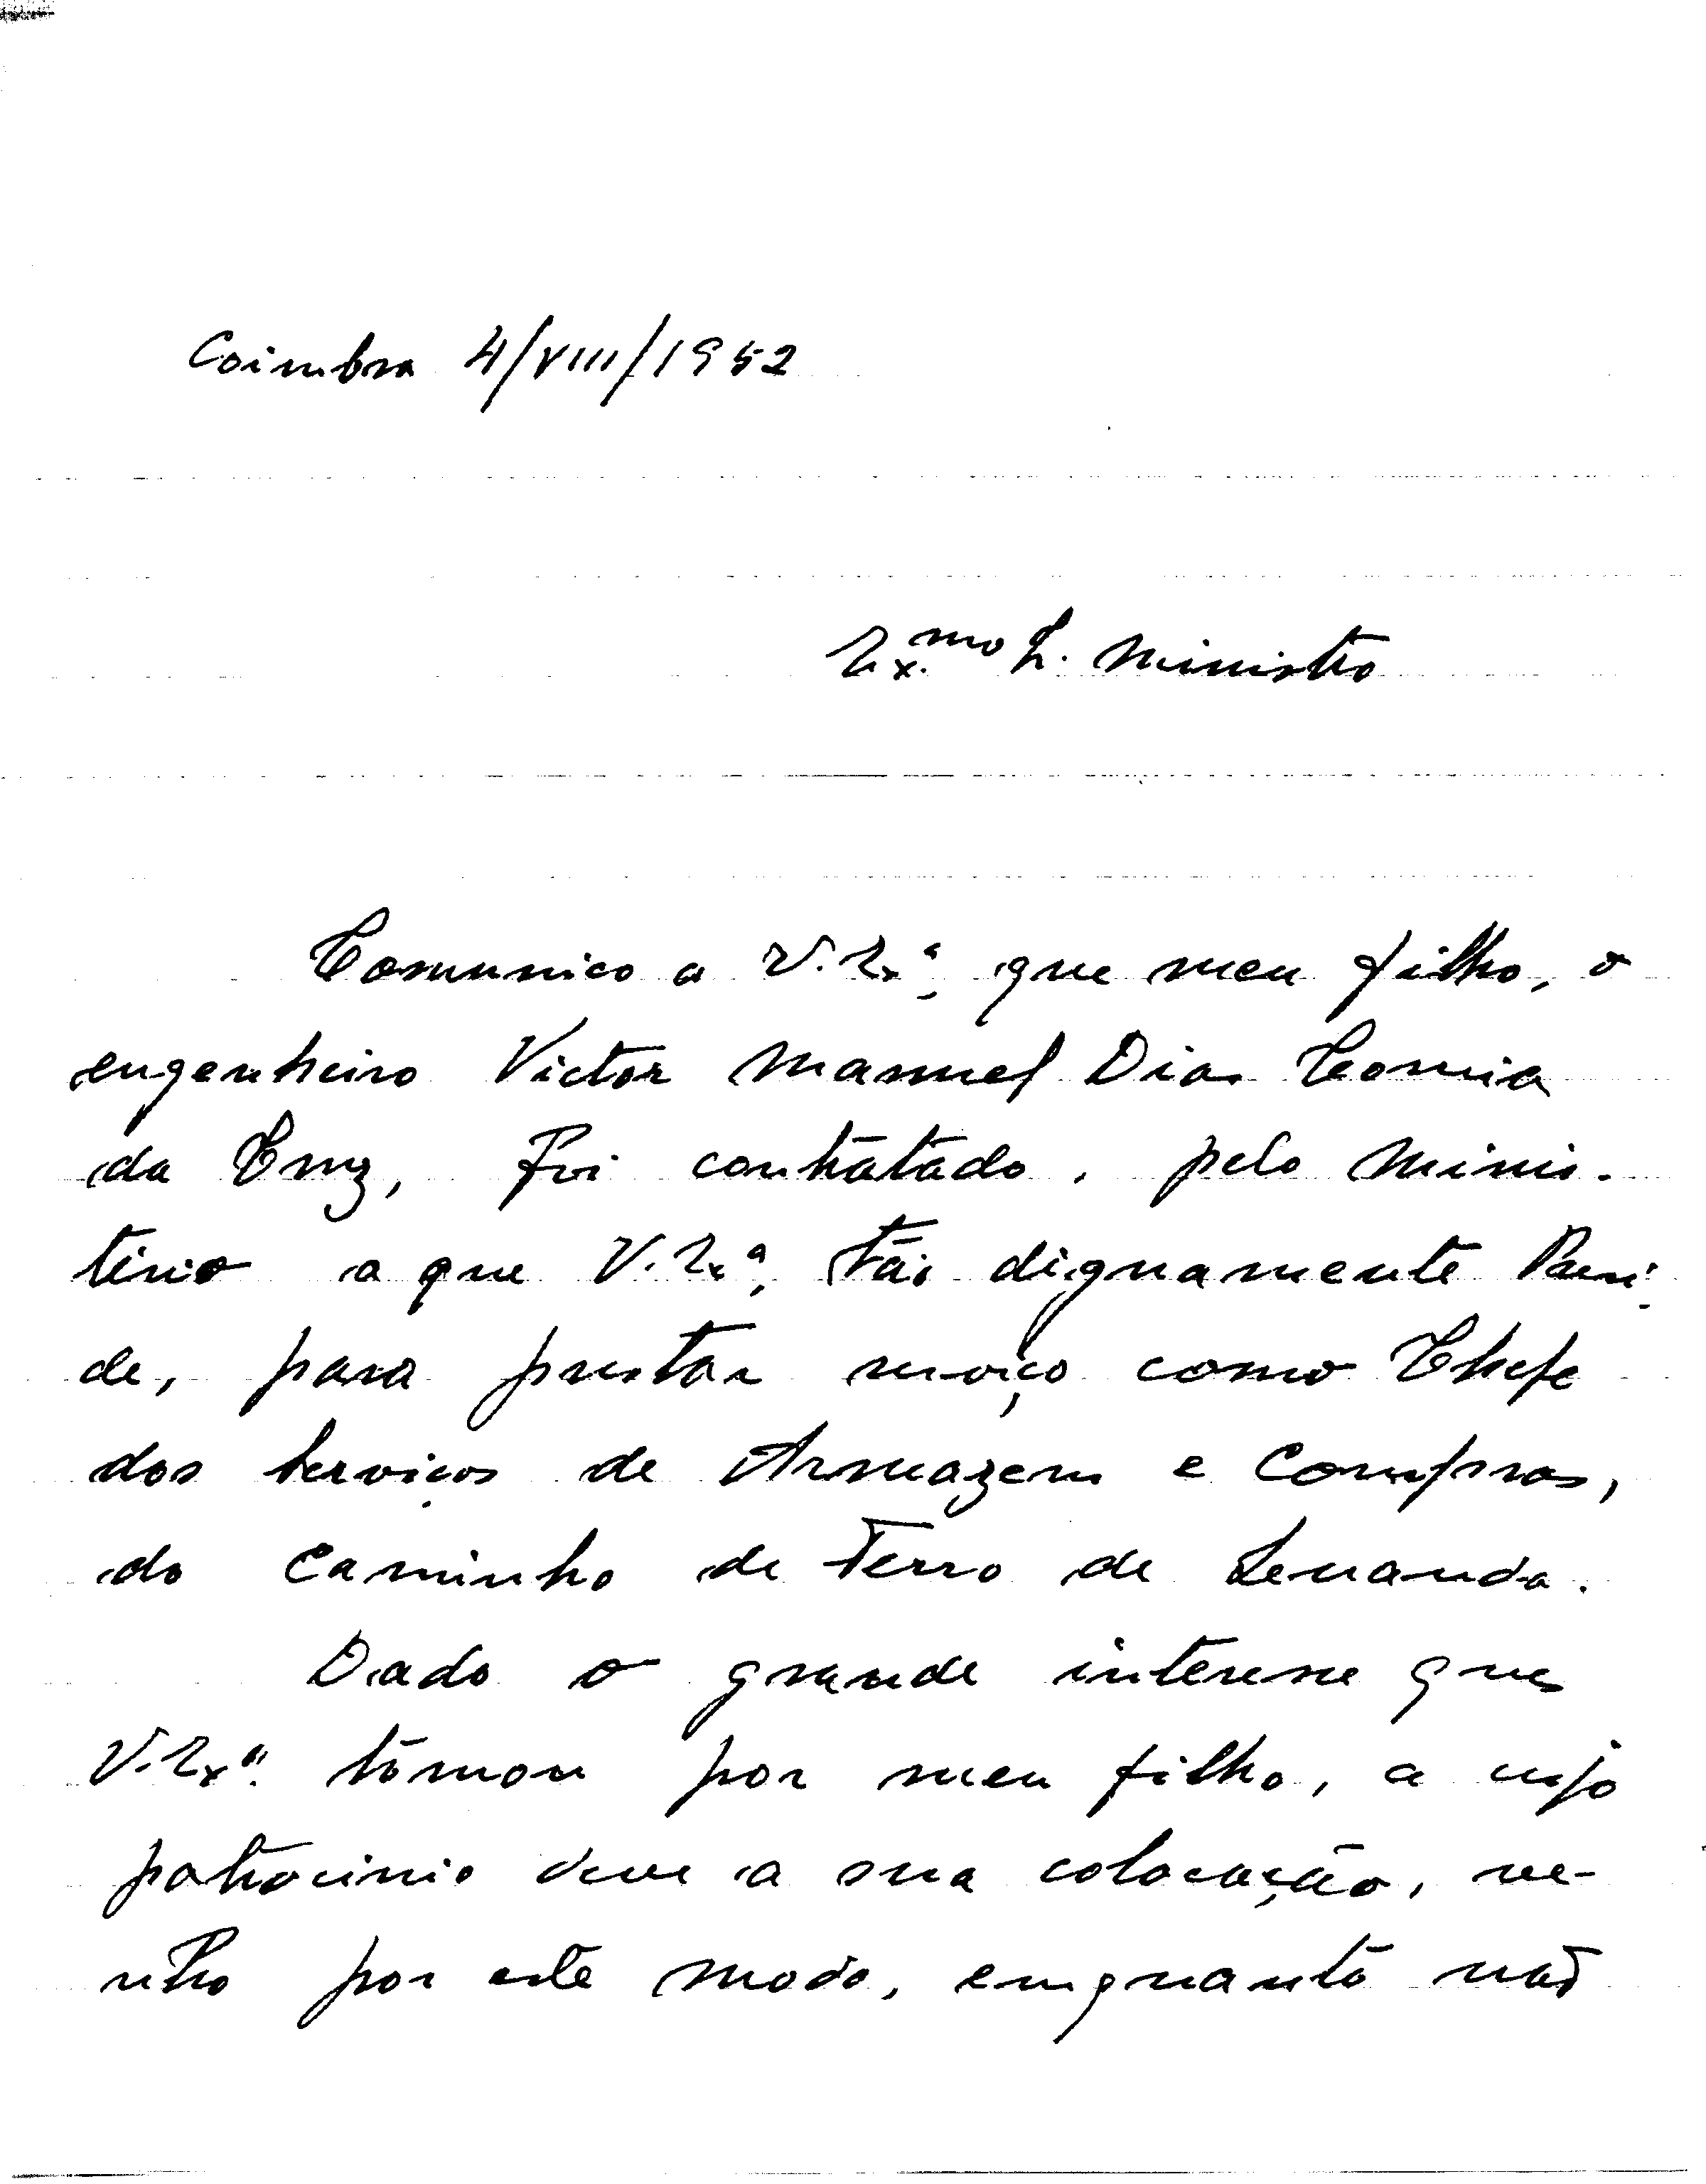 Coimbra 4/VIII/1952
Ex.mo Sr. Ministro
Comunico a V. Ex.ª, que meu filho, o
engenheiro Victor Manuel Dias Correia
da Cruz, foi contratado, pelo Minis-
tério a que V. Ex.ª, tão dignamente Presi-
de, para prestar serviço como Chefe
dos Serviços de Armazem e Compras,
do Caminho de Ferro de Luanda.
Dado o grande interesse que
V. Ex.ª tomou por meu filho, a cujo
patrocinio deve a sua colocação, ve-
nho por este modo, emquanto não